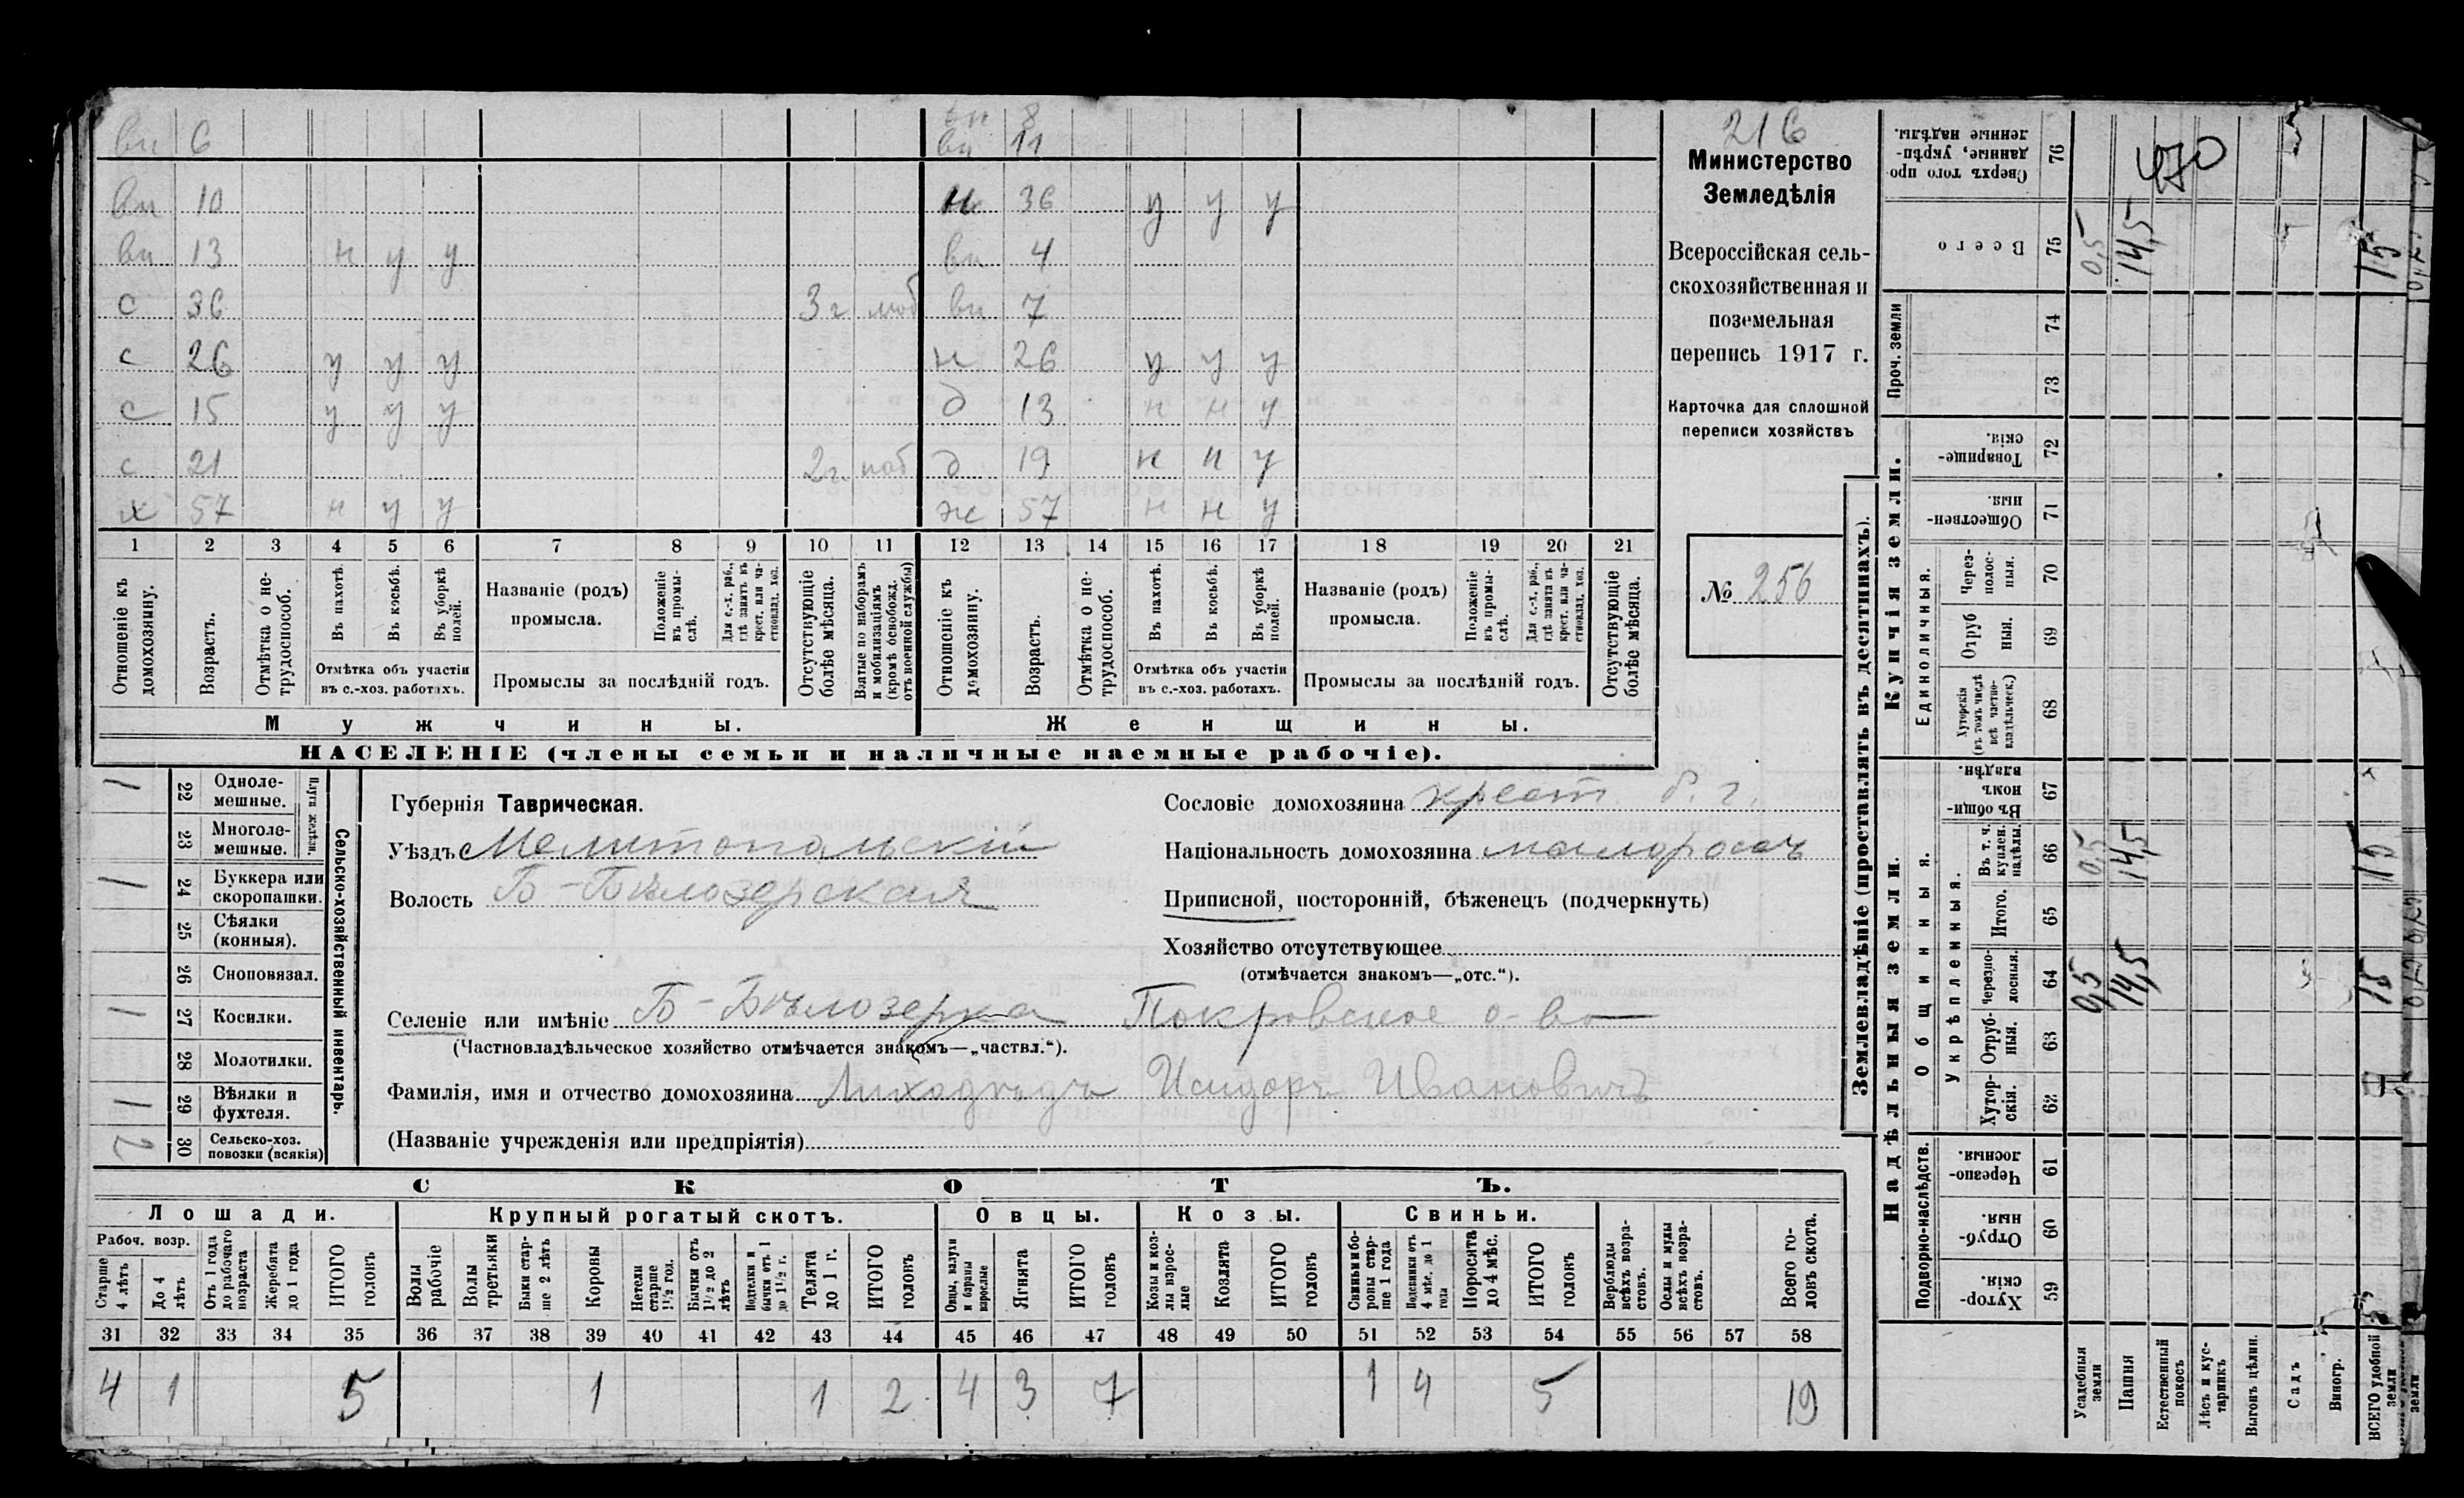 вн 6 вн 8
вн 11
вн 10 н 36 у у у
вн 13 н у у вн 4
с 36 3 г моб вн 7
с 26 у у у н 26 у у у
с 15 у у у д 13 н н у
с 21 2 г. моб д 19 н н у
х 57 н у у ж 57 н н у
1 2 3 4 5 6 7 8 9 10 11 12 13 14 15 16 17 18 19 20 21
Отношеніе къ домохозяину.
Возрастъ.
Отмѣтка о нетрудоспособ.
Въ пахотѣ.
Въ косьбѣ.
Въ уборкѣ полей.
Отмѣтка объ участіи въ с.-хоз. работахъ.
Названіе (родъ) промысла.
Положеніе въ промыслѣ.
Для с.-х. раб., гдѣ занятъ въ крест. или частновлад. хоз.
Промыслы за послѣдній годъ.
Отсутствующіе болѣе мѣсяца.
Взятые по наборамъ и мобилизаціямъ (кромѣ освобожд. отъ военной службы)
Отношеніе къ домохозяину.
Возрастъ.
Отмѣтка о нетрудоспособ.
Въ пахотѣ.
Въ косьбѣ.
Въ уборкѣ полей.
Отмѣтка объ участіи въ с.-хоз. работахъ.
Названіе (родъ) промысла.
Положеніе въ промыслѣ.
Для с.-х. раб., гдѣ занята въ крест. или частновлад. хоз.
Промыслы за послѣдній годъ.
Отсутствующіе болѣе мѣсяца.
Мужчины.
Женщины.
НАСЕЛЕНІЕ (члены семьи и наличные наемные рабочіе).
216
Министерство
Земледѣлія
Всероссійская сель-
скохозяйственная и
поземельная
перепись 1917 г.
Карточка для сплошной
переписи хозяйствъ
№ 256
Сельско-хозяйственный инвентарь.
Плуги желѣзн.
1 22 Одноле-мешные.
23 Многоле-мешные.
1 24 Буккера или скоропашки.
25 Сѣялки (конныя).
26 Сноповязал.
1 27 Косилки.
28 Молотилки.
1 29 Вѣялки и фухтеля.
2 30 Сельско-хоз. повозки (всякія)
Губернія Таврическая.
Уѣздъ Мелитопольскій
Волость Б-Бѣлозерская
Селеніе или имѣніе Б-Бѣлозерка Покровское о-во
(Частновладѣльческое хозяйство отмѣчается знакомъ—„частвл.“).
Фамилія, имя и отчество домохозяина Лиходѣдъ Исидоръ Ивановичъ
(Названіе учрежденія или предпріятія)
Сословіе домохозяина крест. б. г.
Національность домохозяина малоросъ
Приписной, посторонній, бѣженецъ (подчеркнуть)
Хозяйство отсутствующее
(отмѣчается знакомъ—„отс.“).
СКОТЪ.
Лошади. Крупный рогатый скотъ. Овцы. Козы. Свиньи.
Рабоч. возр.
Старше 4 лѣтъ
До 4 лѣтъ
Отъ 1 года до рабочаго возраста
Жеребята до 1 года
ИТОГО головъ
Волы рабочіе
Волы третьяки
Быки старше 2 лѣтъ
Коровы
Нетели старше 1½ год.
Бычки отъ 1½ до 2 лѣтъ
Подтелки и бычки отъ 1 до 1½ г.
Телята до 1 г.
ИТОГО головъ
Овцы, валухи и бараны взрослые
Ягнята
ИТОГО головъ
Козы и козлы взрослые
Козлята
ИТОГО головъ
Свиньи и боровы старше 1 года
Подсвинки отъ 4 мѣс. до 1 года
Поросята до 4 мѣс.
ИТОГО головъ
Верблюды всѣхъ возрастовъ.
Ослы и мулы всѣхъ возрастовъ.
Всего головъ скота.
31 32 33 34 35 36 37 38 39 40 41 42 43 44 45 46 47 48 49 50 51 52 53 54 55 56 57 58
4 1 5 1 1 2 4 3 7 1 4 5 19
Землевладѣніе (проставлять въ десятинахъ).
Купчія земли.
Надѣльныя земли.
Сверхъ того проданные, укрѣпленные надѣлы. 76 470
Всего 75 0,5 14,5 15
Проч. земли 74
73
Товарищескія. 72
Общественныя. 71
Единоличныя.
Черезполосныя. 70
Отрубныя. 69
Хуторскія (въ томъ числѣ всѣ частновладѣльческ.) 68
Общинныя.
Въ общинномъ владѣн. 67
Укрѣпленныя.
Въ т. ч. куплен. надѣлы. 66 0,5 14,5 15
Итого. 65
Черезполосныя. 64 0,5 14,5 15
Отрубныя. 63
Хуторскія. 62
Подворно-наслѣдств.
Черезполосныя. 61
Отрубныя. 60
Хуторскія. 59
Усадебныя земли
Пашня
Естественный покосъ
Лѣсъ и кустарникъ
Выгонъ цѣлин.
Садъ
Виногр.
ВСЕГО удобной земли